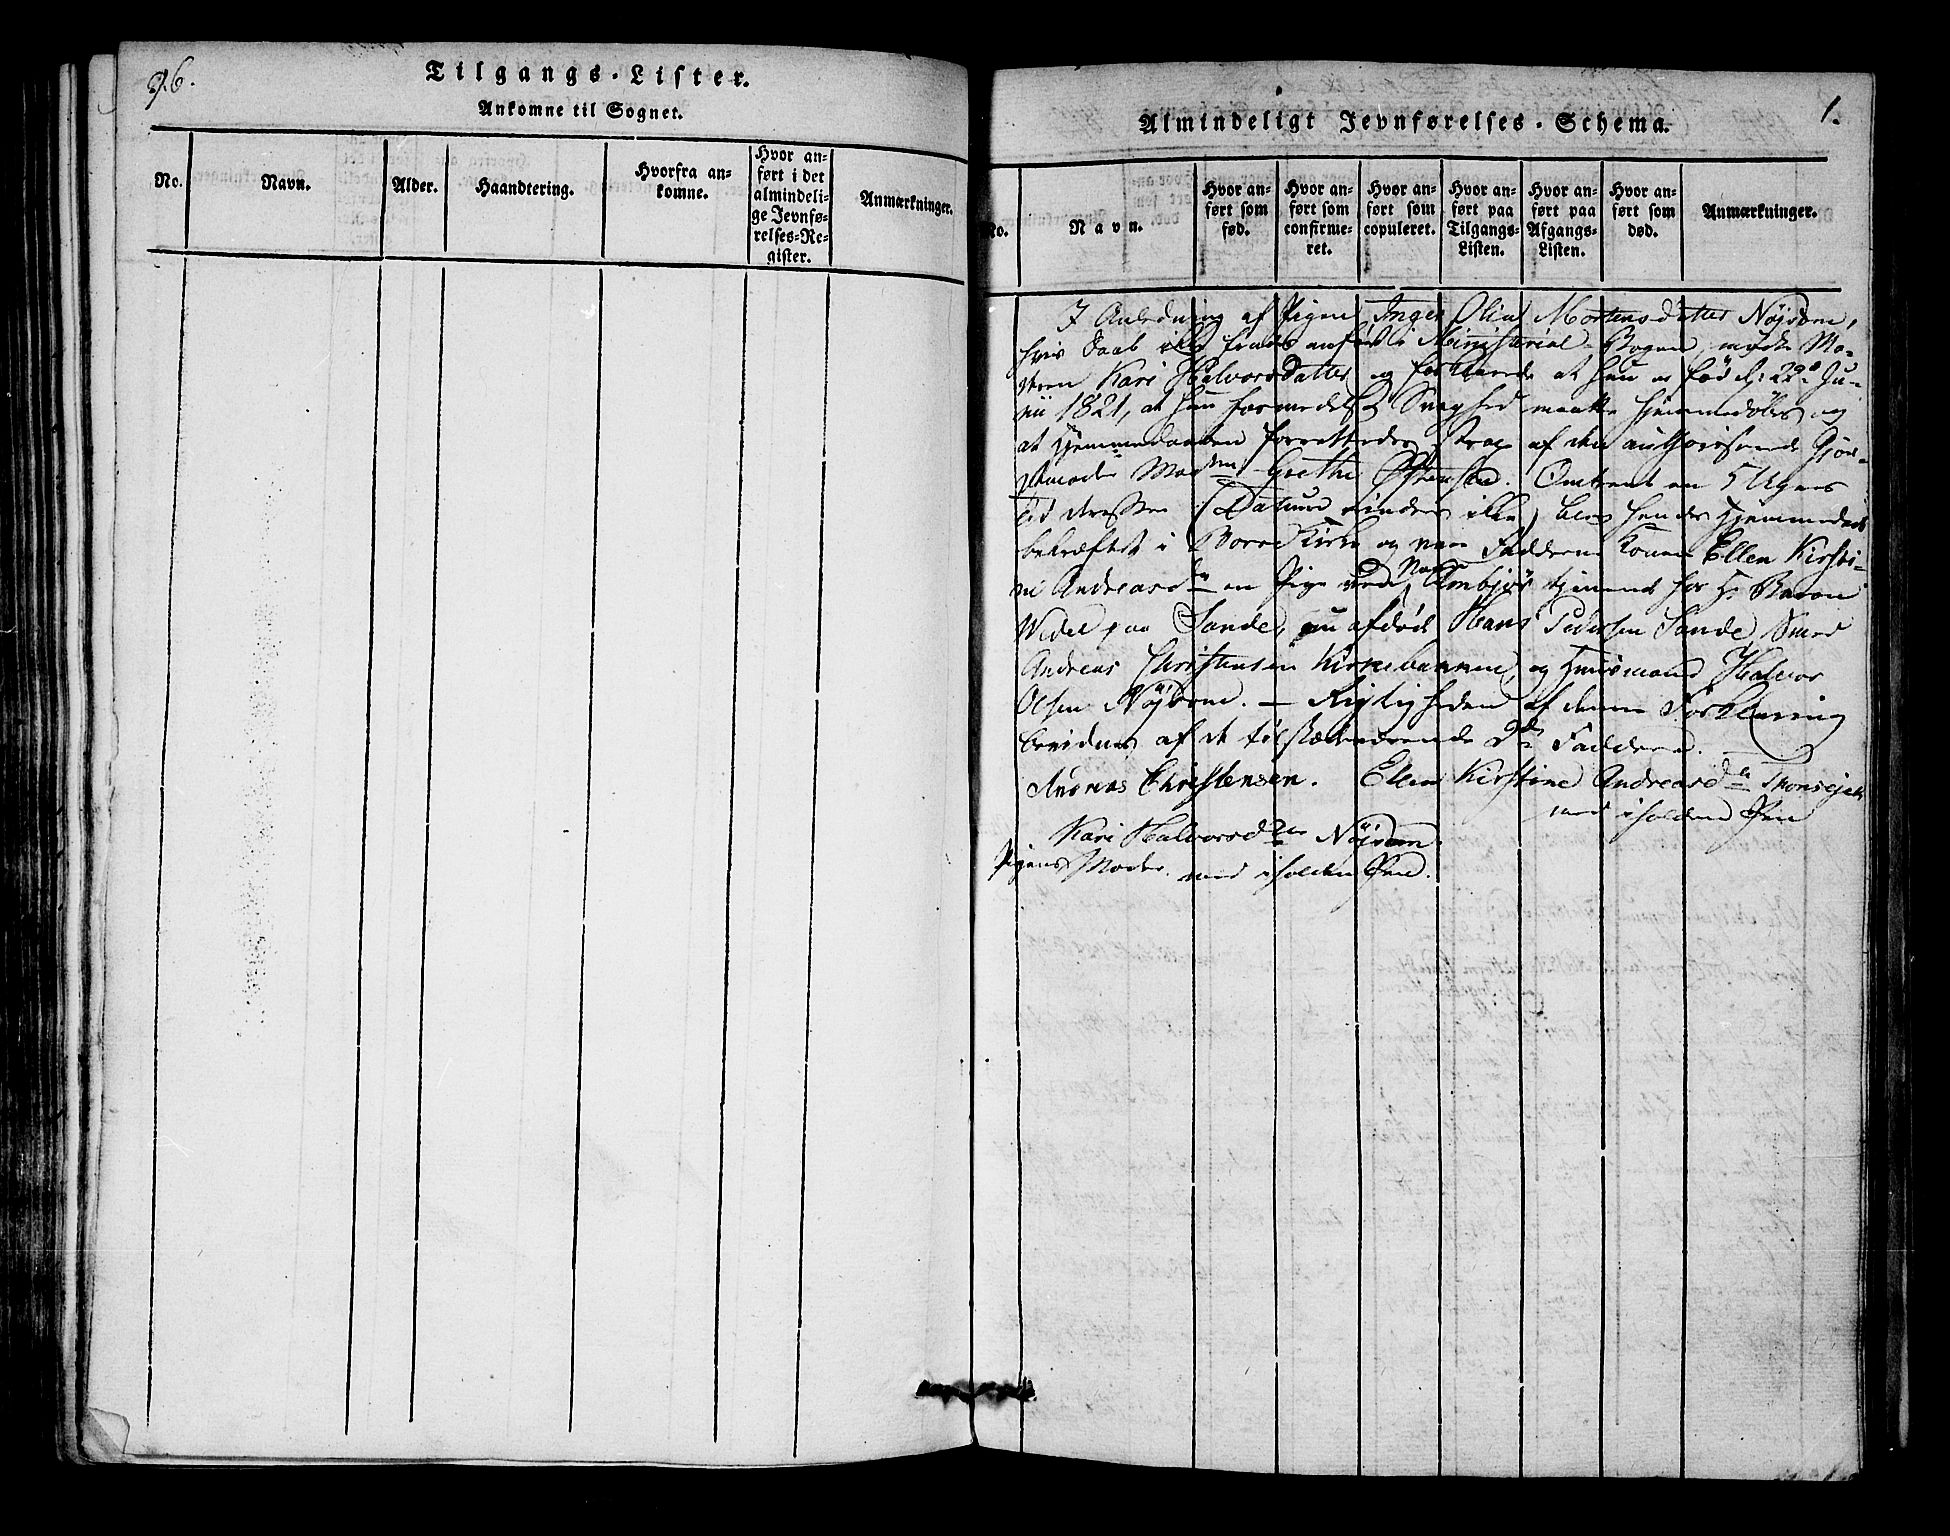 96.
Tilgangs-Lister.
Ankomne til Sognet.
No.
Navn.
Alder.
Haandtering.
Hvorfra an-
komne.
Hvor an-
ført i det
almindeli-
ge Jevnfø-
relses-Re-
gister.
Anmærkninger.
1.
Almindeligt Jevnførelses-Schema.
No.
Navn.
Hvor an-
ført som
fød.
Hvor an-
ført som
confirme-
ret.
Hvor an-
ført som
copuleret.
Hvor an-
ført paa
Tilgangs-
Listen.
Hvor an-
ført paa
Afgangs-
Listen.
Hvor an-
ført som
død.
Anmærkninger.
I Anledning af Pigen Inger Olia Mortensdatter Nøjsom,
hvis Daab ikke findes anført i Ministerial-Bogen, mødte Mo-
deren Kari Halvorsdatter og forklarede at hun er fød d: 22de Ju-
nii 1821, at hun formedelst Svaghed maatte hjemmedøbes og
at Hjemmedaaben forrettedes strax af den authoriserede Gjor-
demoder Madm Grethe Østensen. Omtrent en 5 Ugers
Tid derefter (Datum erindres ikke) blev hendes Hjemmedaab
bekræftet i Borre Kirke og vare Faddere Konen Ellen Kirsti-
ne Andreasdr en Pige ved Navn Ambjør tjenende hos Hr Baron
Wedel paa Sande, nu afdøde Hans Pedersen Sande Smed
Andreas Christensen Kirkebakken, og Huusmand Halvor
Olsen Nøjsom. — Rigtigheden af denne Forklaring
bevidnes af de tilstædeværende 2de Faddere.
Andreas Christensen. Ellen Kirstine Andreasdr
med iholden Pen
Kari Halvorsdr Nøjsom
Pigens Moder. med iholden Pen.